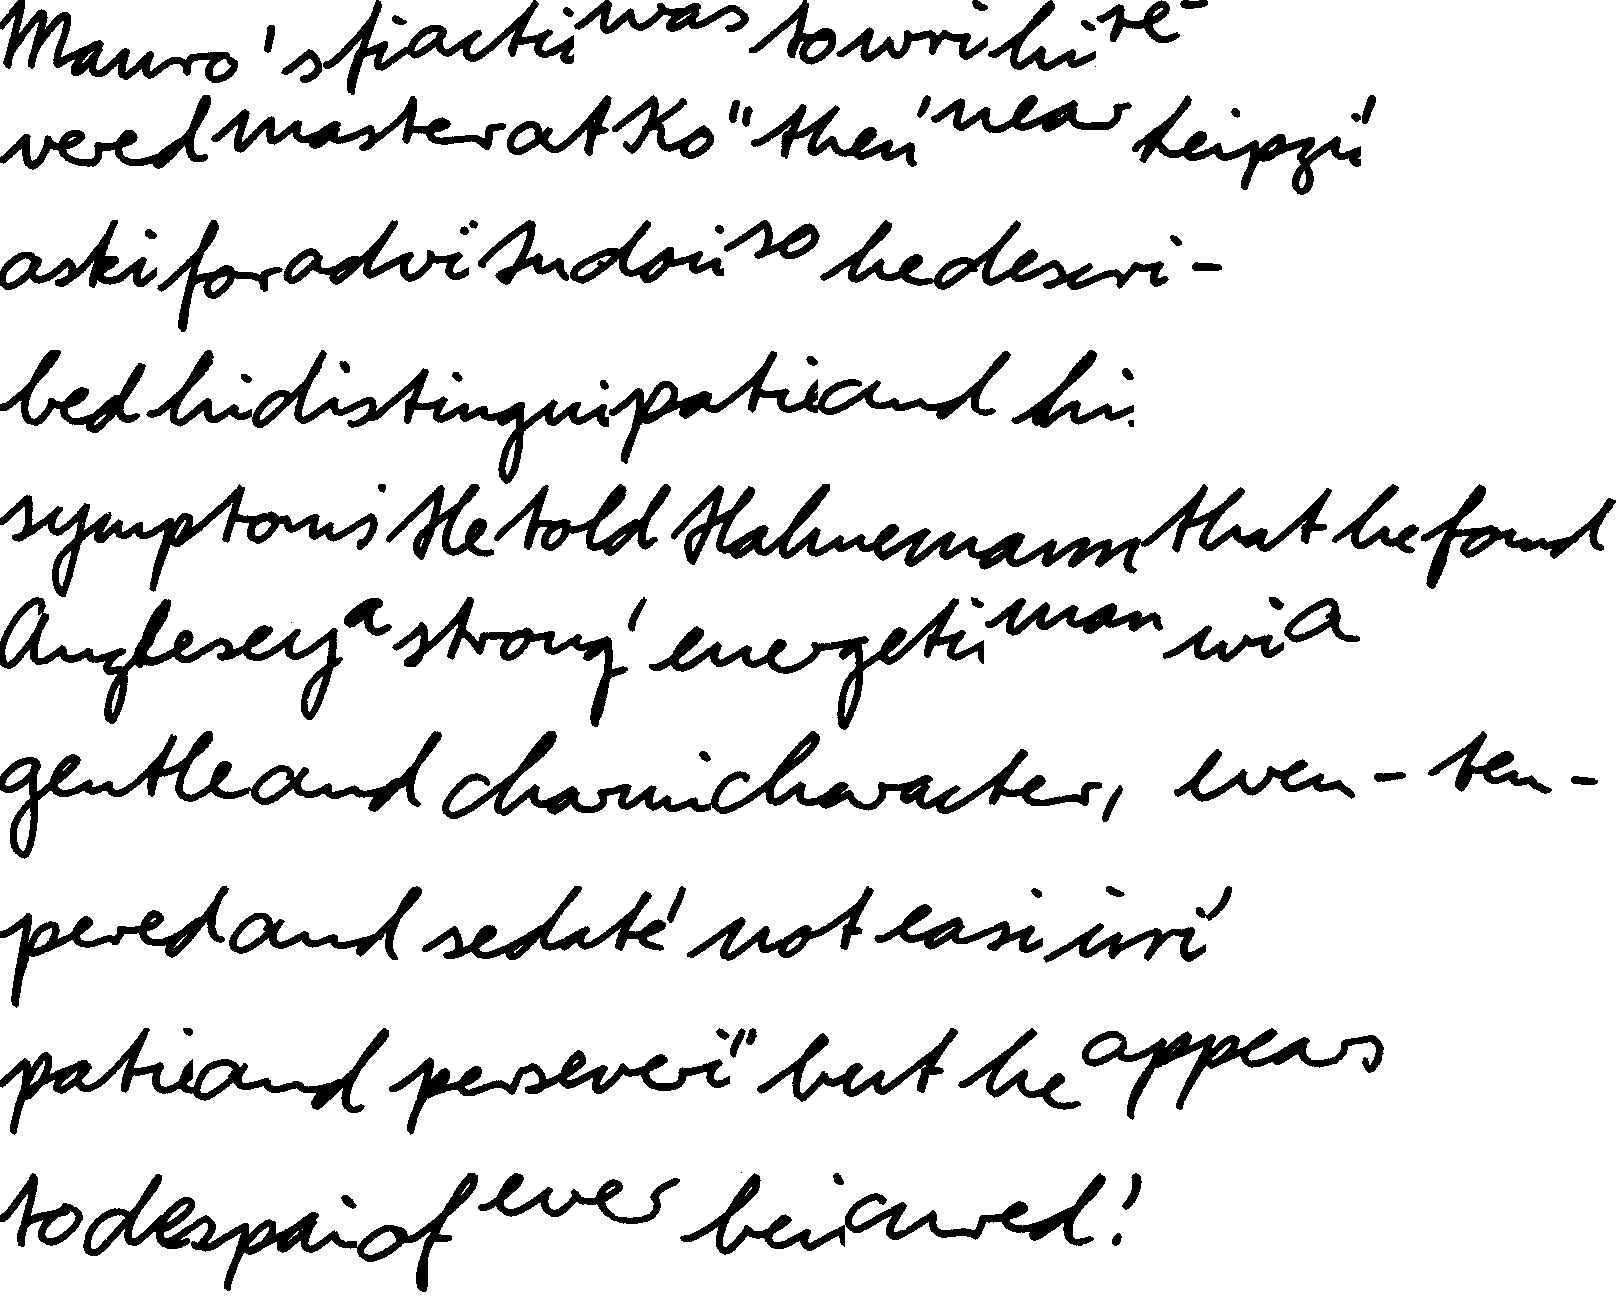 Mauro's fiactii was to wri hi re-
vered master at Ko"then' near Leipzii'
aski for advi Indoii so he descri-
bed hi distingui patie and hi.
symptoms He told Hahnemann that he found
Anglesey a strong' energeti man wi a
gentle and charmi character, even-tem-
pered and sedate' not easi irri'
patie and perseveri" but he appears
to despai of ever bei cured!